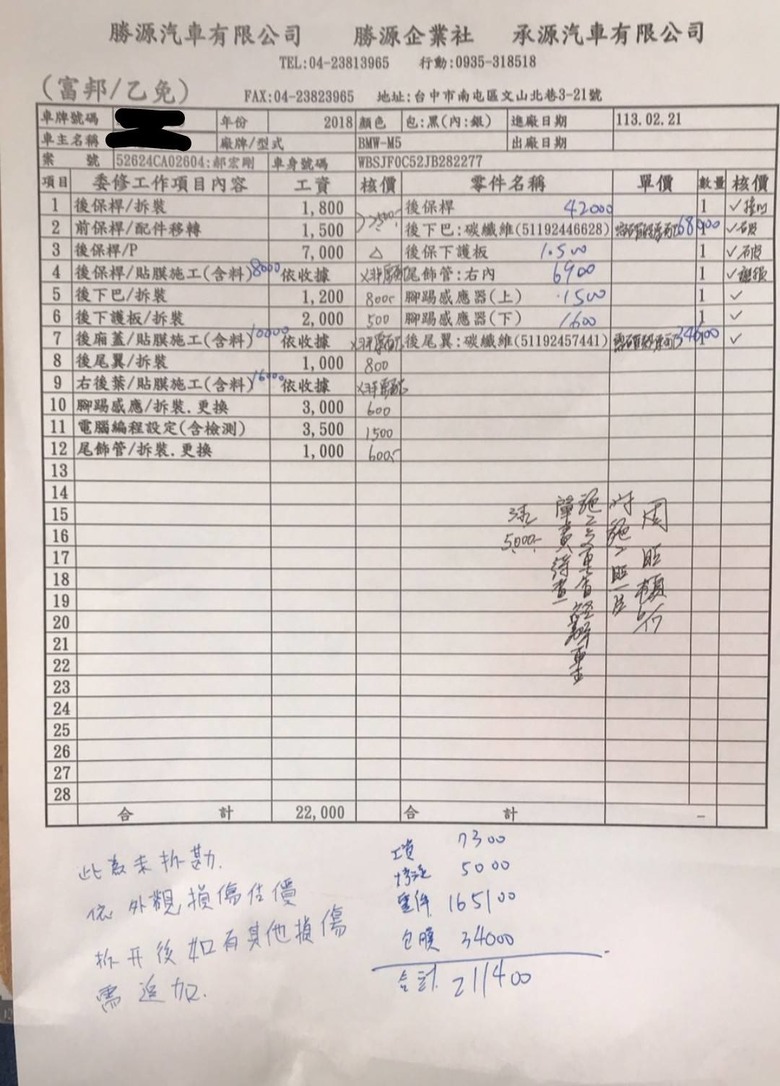 勝源汽車有限公司 勝源企業社 承源汽車有限公司
TEL:04-23813965 行動:0935-318518
(富邦/乙免) FAX:04-23823965 地址:台中市南屯區文山北巷3-21號
車牌號碼 年份 2018 顏色 包:黑(內:銀) 進廠日期 113.02.21
車主名稱 廠牌/型式 BMW-M5 出廠日期
案 號 52624CA02604:郝宏剛 車身號碼 WBSJF0C52JB282277
項目 委修工作項目內容 工資 核價 零件名稱 單價 數量 核價
1 後保桿/拆裝 1,800 後保桿 42000 1 ✓
2 前保桿/配件移轉 1,500 後下巴:碳纖維(51192446628) 68000 1 ✓破
3 後保桿/P 7,000 △ 後保下護板 1.500 1 ✓破
4 後保桿/貼膜施工(含料) 8000 依收據 尾飾管:右內 6900 1 ✓
5 後下巴/拆裝 1,200 800 腳踢感應器(上) 1500 1 ✓
6 下護板/拆裝 2,000 500 腳踢感應器(下) 1600 1 ✓
7 後廂蓋/貼膜施工(含料) 10000 依收據 後尾翼:碳纖維(51192457441) 1 ✓
8 後尾翼/拆裝 1,000 800
9 右後葉/貼膜施工(含料) 16000 依收據
10 腳踢感應/拆裝.更換 3,000 600
11 電腦編程設定(含檢測) 3,500 1500
12 尾飾管/拆裝.更換 1,000 600
13
14
15
16 5000
17
18
19
20
21
22
23
24
25
26
27
28
合 計 22,000 合 計 -
此為未拆勘.
依外觀損傷估價
拆开後如有其他損傷
需追加.
工資 7300
烤漆 5000
零件 165100
包膜 34000
合計 211400